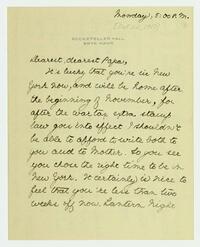 Monday, 5:00 P.M.
ROCKEFELLER HALL
BRYN MAWR
Dearest, dearest Papa,
It's lucky that you're in New
York now, and will be home after
the beginning of November, for
after the war tax extra stamp
law goes into effect I shouldn't
be able to afford to write both to
you and to Mother. So you see
you chose the right time to be in
New York. It certainly is nice to
feel that you're less than two
weeks off now. Lantern Night